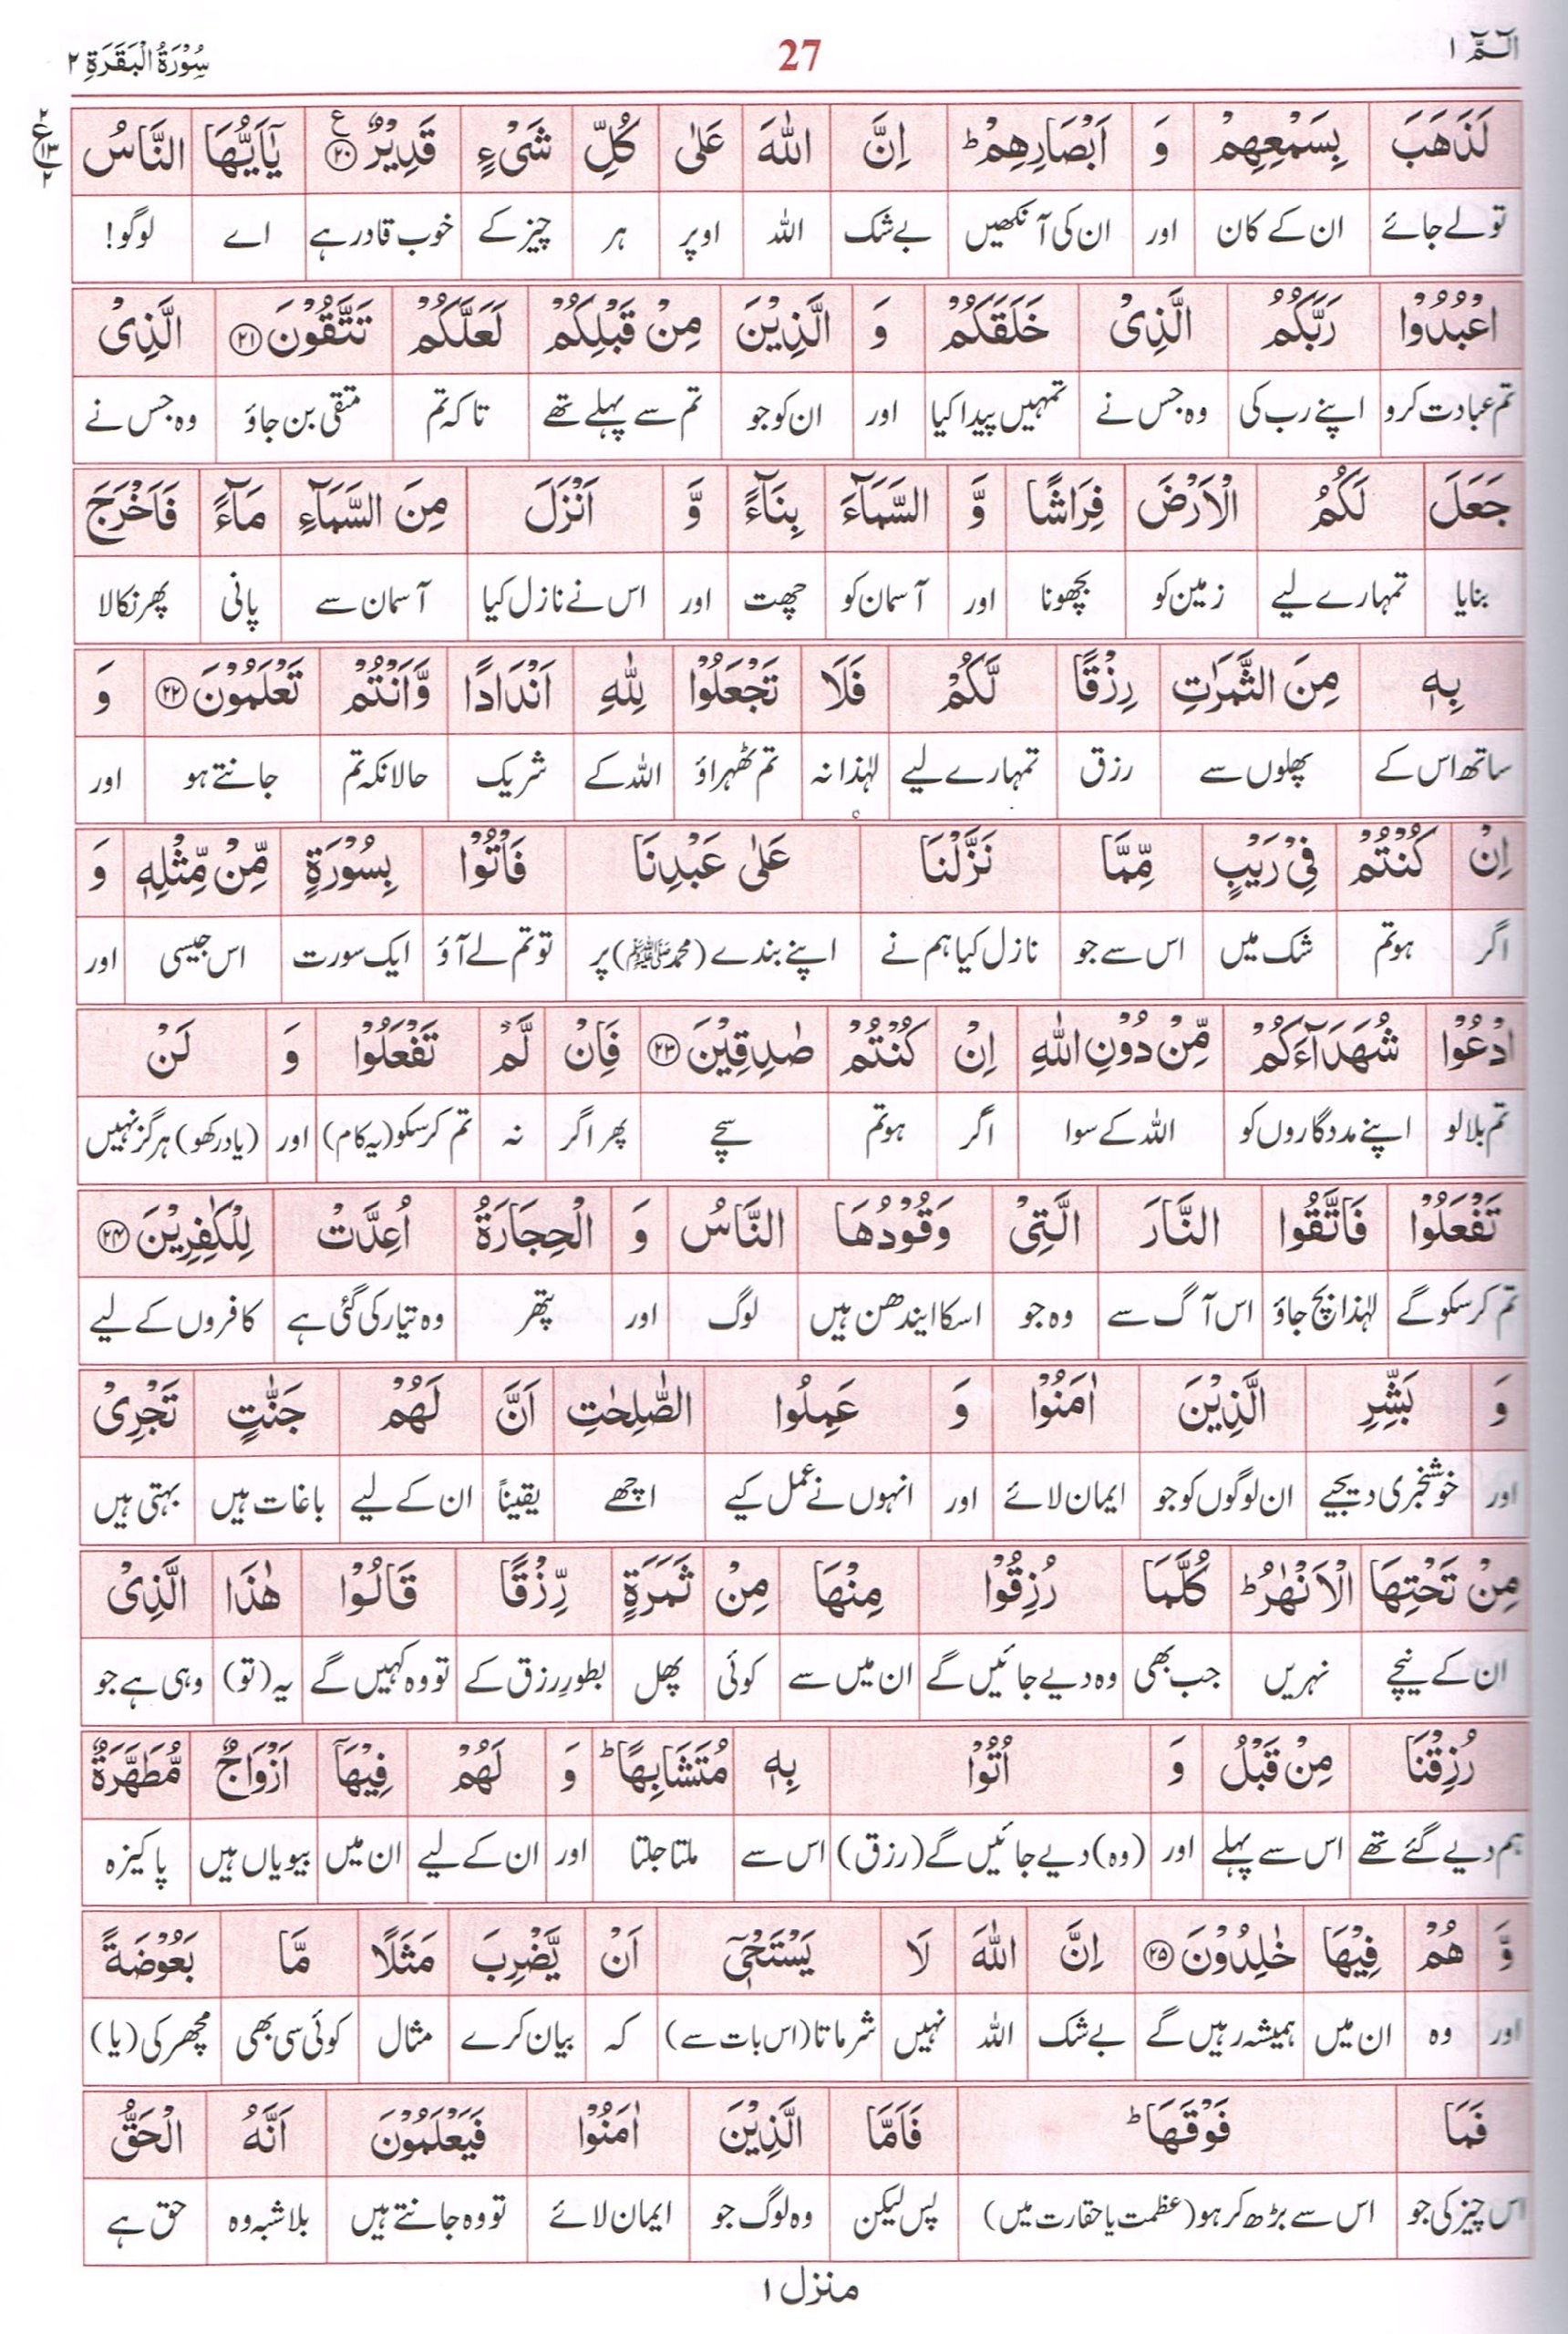 الٓـمّٓ ۱ 27 سُوْرَةُ الْبَقَرَةِ ۲
لَذَهَبَ بِسَمْعِهِمْ وَ اَبْصَارِهِمْ ؕ اِنَّ اللّٰهَ عَلٰی كُلِّ شَیْءٍ قَدِیْرٌ ۟ ﴿۲۰﴾ ع یٰۤاَیُّهَا النَّاسُ
تو لے جائے ان کے کان اور ان کی آنکھیں بے شک اللہ اوپر ہر چیز کے خوب قادر ہے اے لوگو!
اعْبُدُوْا رَبَّكُمُ الَّذِیْ خَلَقَكُمْ وَ الَّذِیْنَ مِنْ قَبْلِكُمْ لَعَلَّكُمْ تَتَّقُوْنَ ﴿۲۱﴾ الَّذِیْ
تم عبادت کرو اپنے رب کی وہ جس نے تمہیں پیدا کیا اور ان کو جو تم سے پہلے تھے تاکہ تم متقی بن جاؤ وہ جس نے
جَعَلَ لَكُمُ الْاَرْضَ فِرَاشًا وَّ السَّمَآءَ بِنَآءً وَّ اَنْزَلَ مِنَ السَّمَآءِ مَآءً فَاَخْرَجَ
بنایا تمہارے لیے زمین کو بچھونا اور آسمان کو چھت اور اس نے نازل کیا آسمان سے پانی پھر نکالا
بِهٖ مِنَ الثَّمَرٰتِ رِزْقًا لَّكُمْ فَلَا تَجْعَلُوْا لِلّٰهِ اَنْدَادًا وَّاَنْتُمْ تَعْلَمُوْنَ ﴿۲۲﴾ وَ
ساتھ اس کے پھلوں سے رزق تمہارے لیے لہٰذا نہ تم ٹھہراؤ اللہ کے شریک حالانکہ تم جانتے ہو اور
اِنْ كُنْتُمْ فِیْ رَیْبٍ مِّمَّا نَزَّلْنَا عَلٰی عَبْدِنَا فَاْتُوْا بِسُوْرَةٍ مِّنْ مِّثْلِهٖ وَ
اگر ہو تم شک میں اس سے جو نازل کیا ہم نے اپنے بندے (محمد ﷺ) پر تو تم لے آؤ ایک سورت اس جیسی اور
ادْعُوْا شُهَدَآءَكُمْ مِّنْ دُوْنِ اللّٰهِ اِنْ كُنْتُمْ صٰدِقِیْنَ ﴿۲۳﴾ فَاِنْ لَّمْ تَفْعَلُوْا وَ لَنْ
تم بلالو اپنے مددگاروں کو اللہ کے سوا اگر ہو تم سچے پھر اگر نہ تم کرسکو (یہ کام) اور (یاد رکھو) ہرگز نہیں
تَفْعَلُوْا فَاتَّقُوا النَّارَ الَّتِیْ وَقُوْدُهَا النَّاسُ وَ الْحِجَارَةُ اُعِدَّتْ لِلْكٰفِرِیْنَ ﴿۲۴﴾
تم کرسکو گے لہٰذا بچ جاؤ اس آگ سے وہ جو اسکا ایندھن ہیں لوگ اور پتھر وہ تیار کی گئی ہے کافروں کے لیے
وَ بَشِّرِ الَّذِیْنَ اٰمَنُوْا وَ عَمِلُوا الصّٰلِحٰتِ اَنَّ لَهُمْ جَنّٰتٍ تَجْرِیْ
اور خوشخبری دیجیے ان لوگوں کو جو ایمان لائے اور انہوں نے عمل کیے اچھے یقیناً ان کے لیے باغات ہیں بہتی ہیں
مِنْ تَحْتِهَا الْاَنْهٰرُ ؕ كُلَّمَا رُزِقُوْا مِنْهَا مِنْ ثَمَرَةٍ رِّزْقًا قَالُوْا هٰذَا الَّذِیْ
ان کے نیچے نہریں جب بھی وہ دیے جائیں گے ان میں سے کوئی پھل بطورِ رزق کے تو وہ کہیں گے یہ (تو) وہی ہے جو
رُزِقْنَا مِنْ قَبْلُ وَ اُتُوْا بِهٖ مُتَشَابِهًا ؕ وَ لَهُمْ فِیْهَاۤ اَزْوَاجٌ مُّطَهَّرَةٌ
ہم دیے گئے تھے اس سے پہلے اور (وہ) دیے جائیں گے (رزق) اس سے ملتا جلتا اور ان کے لیے ان میں بیویاں ہیں پاکیزہ
وَّ هُمْ فِیْهَا خٰلِدُوْنَ ﴿۲۵﴾ اِنَّ اللّٰهَ لَا یَسْتَحْیٖۤ اَنْ یَّضْرِبَ مَثَلًا مَّا بَعُوْضَةً
اور وہ ان میں ہمیشہ رہیں گے بے شک اللہ نہیں شرماتا (اس بات سے) کہ بیان کرے مثال کوئی سی بھی مچھر کی (یا)
فَمَا فَوْقَهَا ؕ فَاَمَّا الَّذِیْنَ اٰمَنُوْا فَیَعْلَمُوْنَ اَنَّهُ الْحَقُّ
اس چیز کی جو اس سے بڑھ کر ہو (عظمت یا حقارت میں) پس لیکن وہ لوگ جو ایمان لائے تو وہ جانتے ہیں بلاشبہ وہ حق ہے
منزل ۱